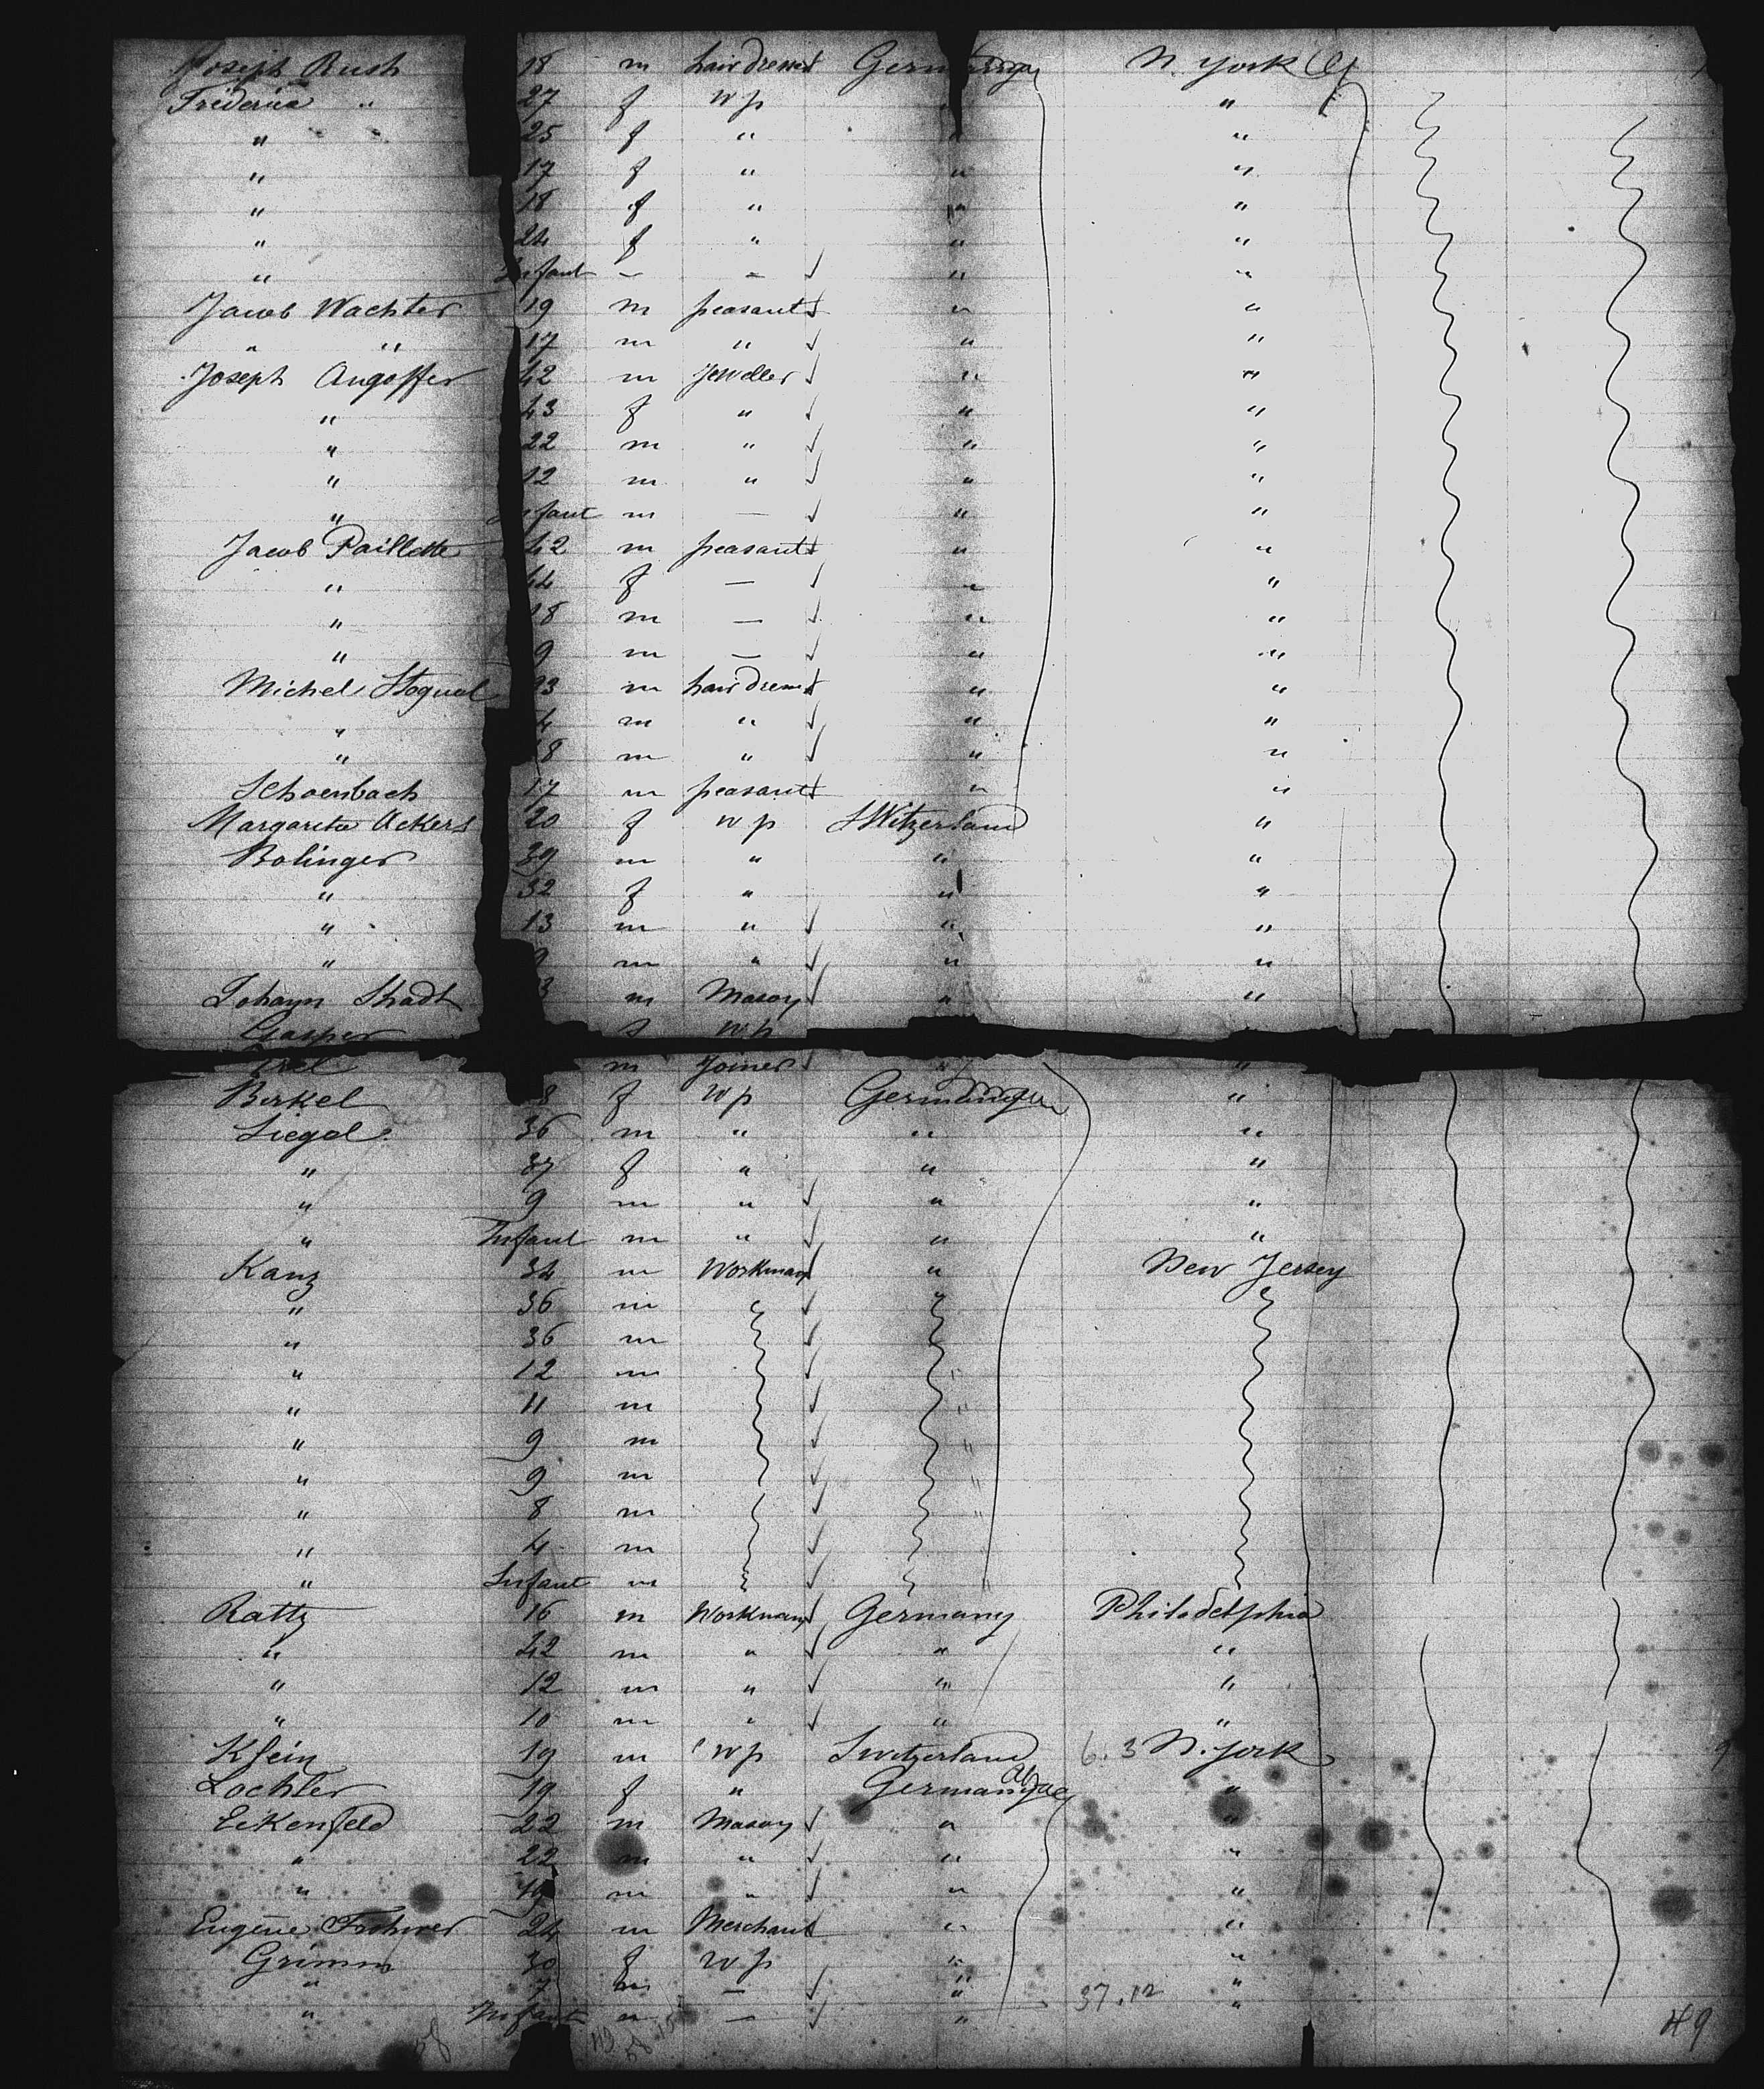 Joseph Rush 18 m hairdresser Germany N. York City
Frideria " 27 f wp " "
" 25 f " " "
" 17 f " " "
" 18 f " " "
" 24 f " " "
" Infant - - " "
Jacob Wachter 19 m peasant " "
" " 17 m " " "
Joseph Angoffer 42 m Jeweller " "
" 43 f " " "
" 22 m " " "
" 12 m " " "
" Infant m — " "
Jacob Paillette 42 m peasant " "
" 44 f — " "
" 18 m — " "
" 9 m — " "
Michel 23 m hairdresser " "
" 4 m " " "
" 18 m " " "
Schoenbach 17 m peasant " "
Margareta Ackers 20 f wp Switzerland "
Bolinger 39 m " " "
" 32 f " " "
" 13 m " " "
" 9 m " " "
Johayn Shadt 3 m Mason " "
Gasper f wp
m Joiner " "
Berkel 8 f wp Germany "
Siegel 36 m " " "
" 37 f " " "
" 9 m " " "
" Infant m " " "
Kanz 34 m Workman " New Jersey
" 36 m
" 36 m
" 12 m "
" 11 m "
" 9 m "
" 9 m "
" 8 m "
" 4 m
" Infant m "
Rattz 16 m Workman Germany Philadelphia
" 42 m " " "
" 12 m " " "
" 10 m " " "
Klein 19 m wp Switzerland 6.3 N. york
Lochler 19 f " Germany "
Eckenfeld 22 m Mason " "
" 22 m " " "
" 19 m " " "
Eugene 24 m Merchant " "
Grimm 30 f wp " "
" 7 m — " "
" Infant m — " 37.12 "
58 49